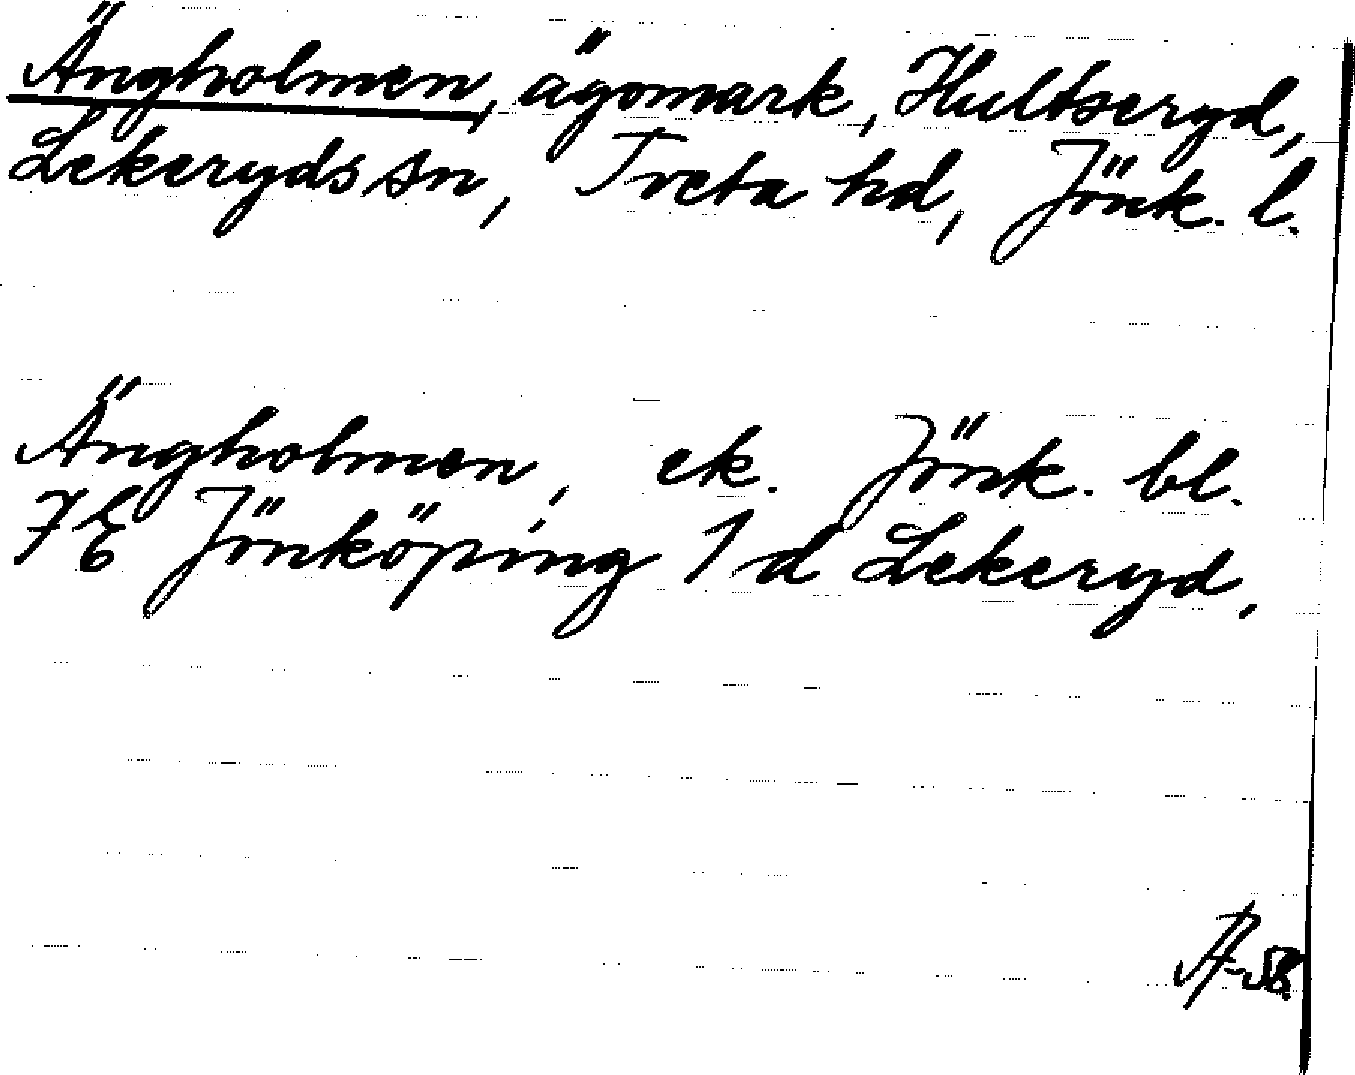 Ängholmen, ägomark, Hultseryd,
Lekeryds sn, Tveta hd, Jönk. l.
Ängholmen, ek. Jönk. bl.
7E Jönköping 1 d Lekeryd.